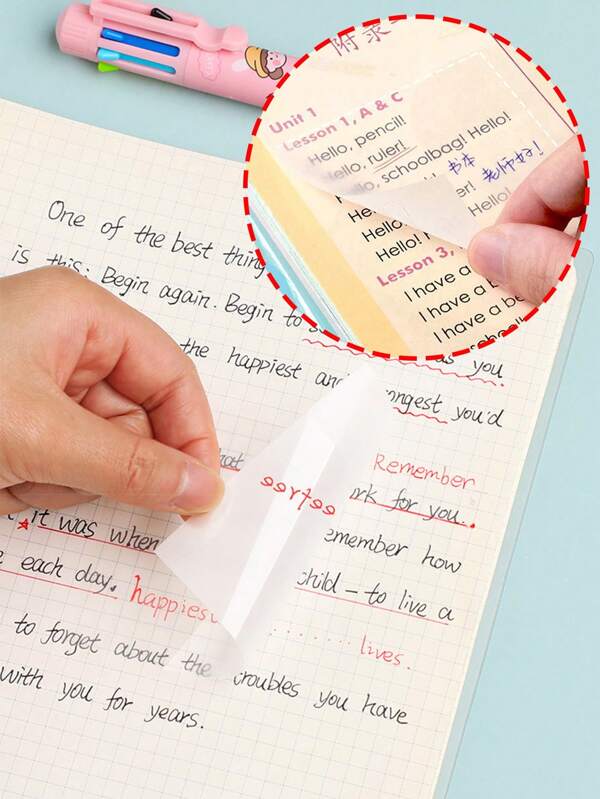 附录
Unit 1
Lesson 1, A & C
Hello, pencil!
ello, ruler!
lo, schoolbag! Hello!
书本
er! 老师好!
Hello!
Hello
Hello!
Lesson 3,
I have a
I have a b
I have a be
school
One of the best thing
is this: Begin again. Begin to
as you
the happiest and ongest you'd
hat Remember
ork for you..
it was when emember how
e each day. happies child – to live a
lives.
to forget about the troubles you have
with you for years.